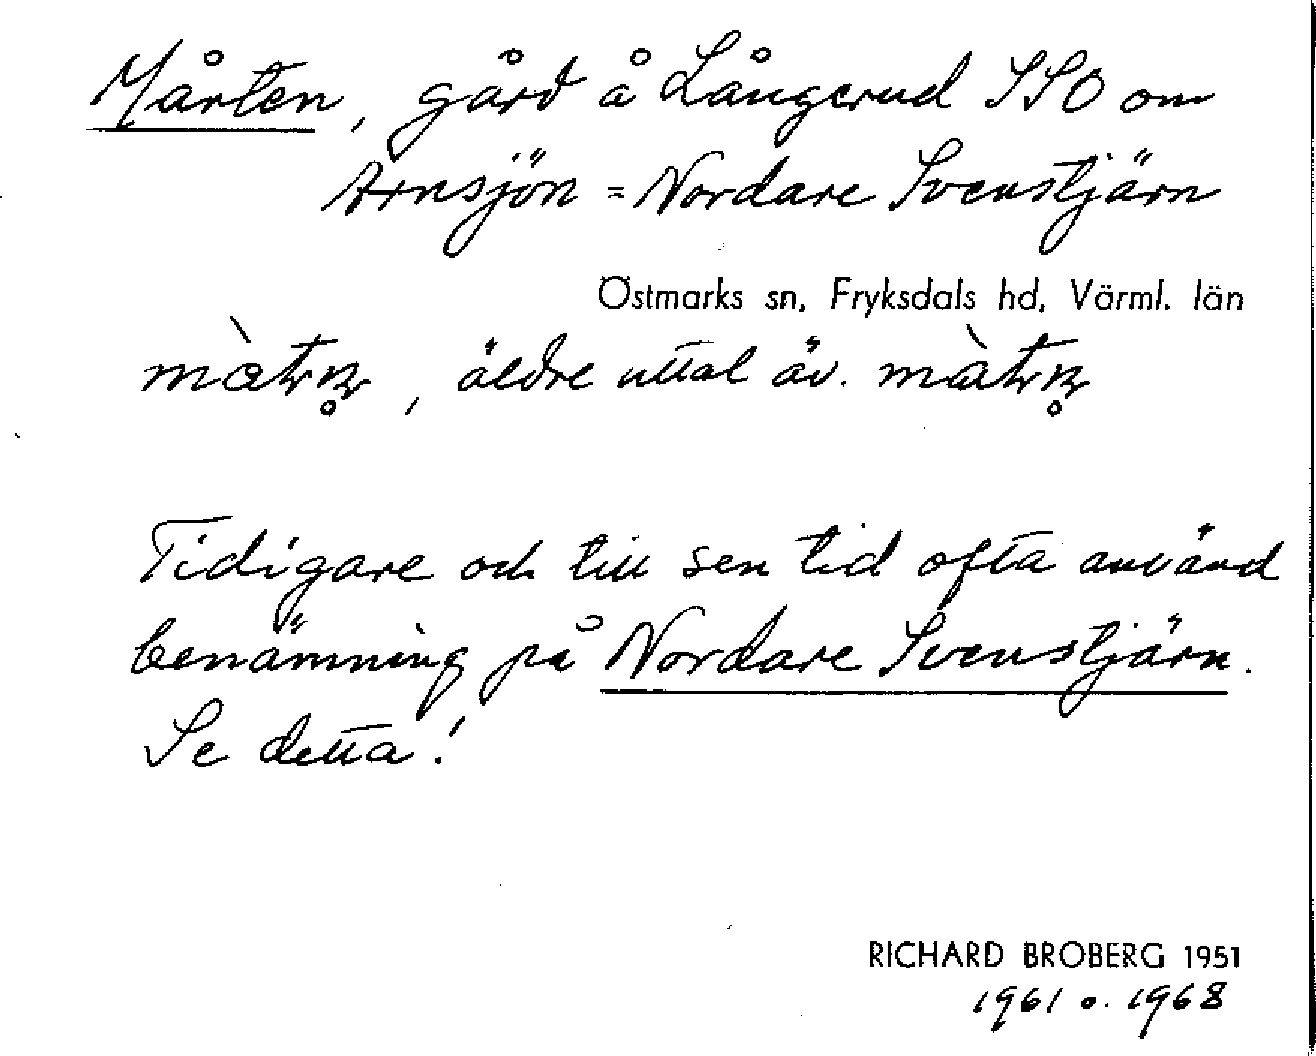 Mårten, gård å Långerud SSO om
Arnsjön = Nordare Svenstjärn
Östmarks sn, Fryksdals hd, Värml. län
äldre uttal äv.
Tidigare och till sen tid ofta använd
benämning på Nordare Svenstjärn.
Se detta!
RICHARD BROBERG 1951
1961 o. 1968